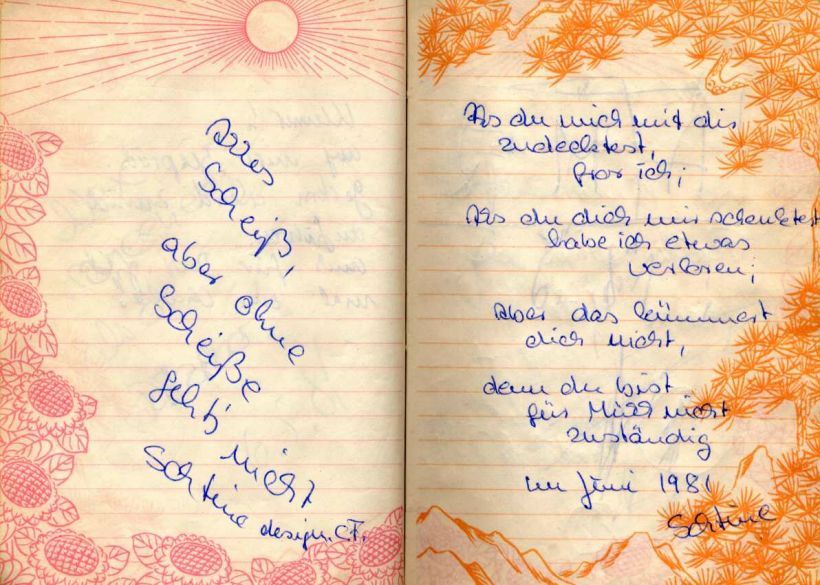 Alles
Scheiß,
aber ohne
Scheiße
geht's
nicht
design. C.F.
Als du mich mit dir
zudecktest,
fror ich;
Als du dich mir schenktest
habe ich etwas
verloren;
Aber das kümmert
dich nicht,
denn du bist
für Mich nicht
zuständig
im Juni 1981